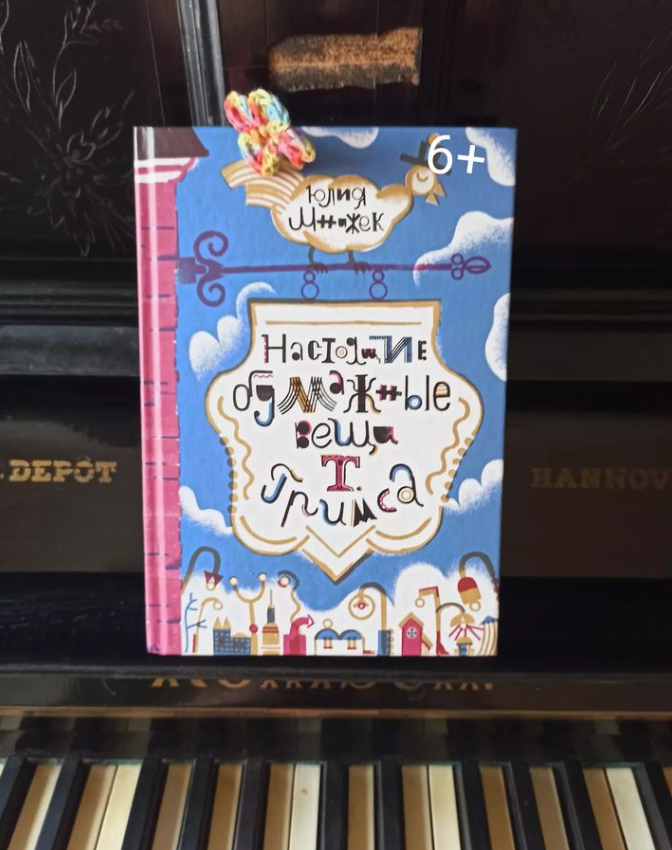 6+
Юлия
Мнажек
Настоящие
бумажные
вещи
Т.
Гримса
. DEPÔT
HANNOV